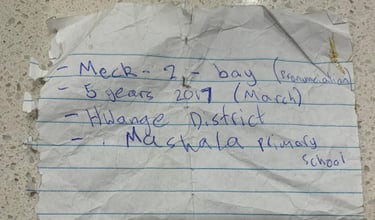 - Meck - 2 - bay (Pronunciation)
- 5 years 2017 (March)
- Hwange District
- . Mashala primary
school